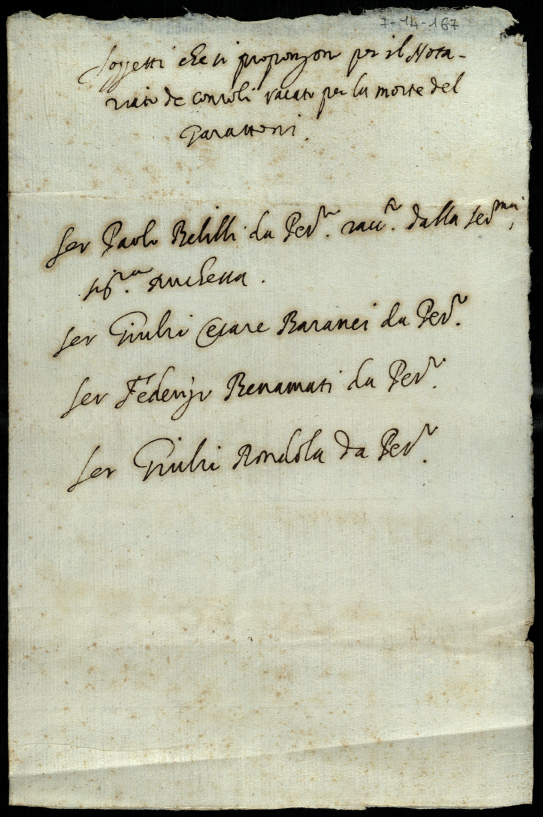 7-14-167
Soggetti che si propongon per il Nota-
riato de consoli vacato per la morte del
Ser Paolo Belilli da Pes.ro racc.to dalla ser.ma
sig.ra Duchessa.
Ser Giulio Cesare Baranci da Pes.ro
Ser Federigo Benamati da Pes.ro
Ser Giulio Rondola da Pes.ro